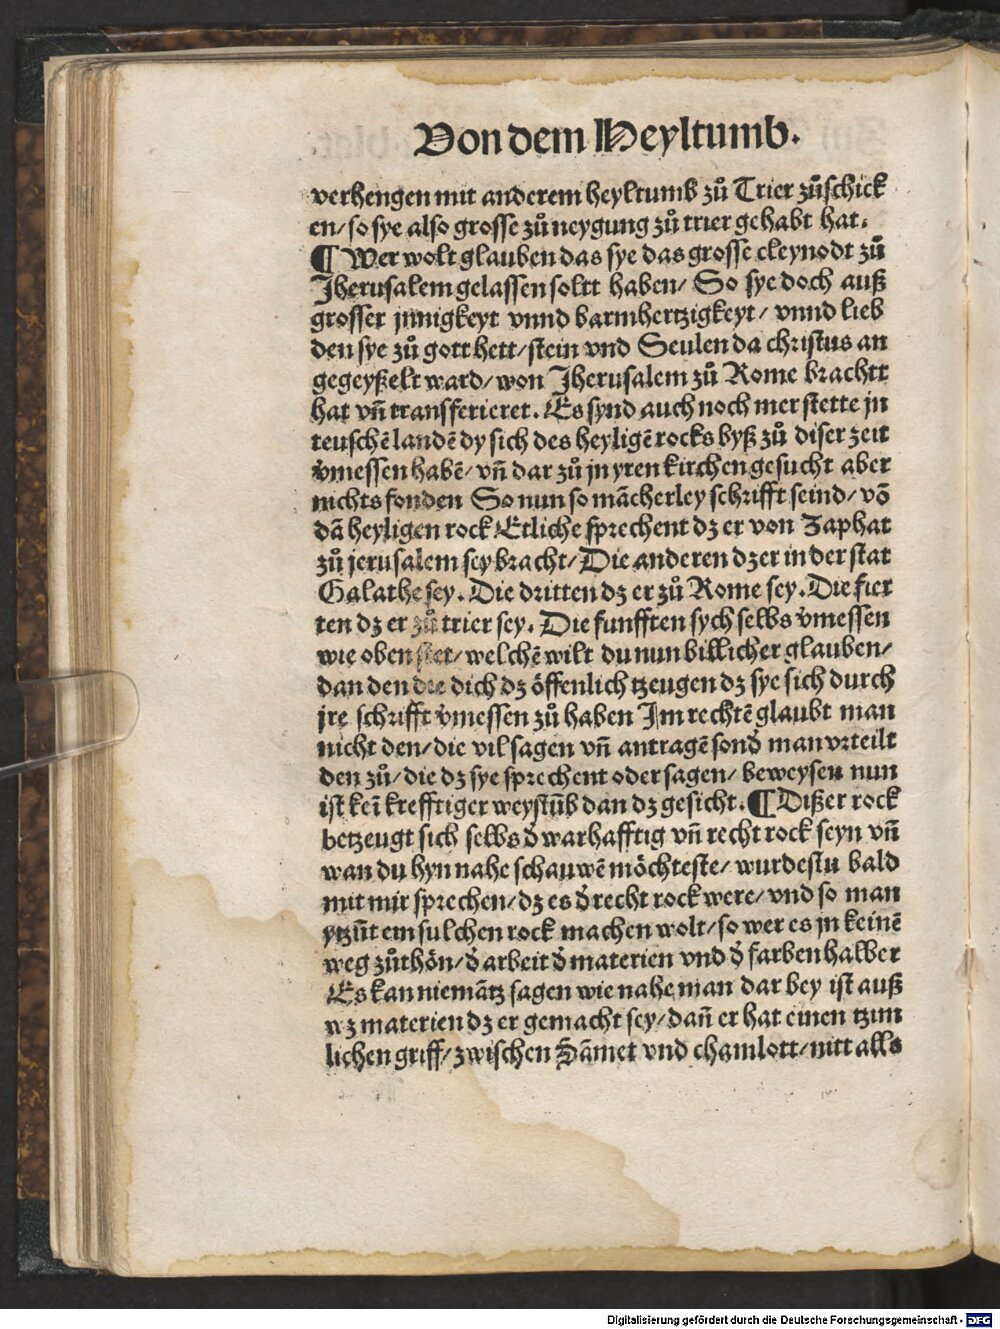 Von dem Heyltumb.
verhengen mit anderem heyltumb zů Trier zůschick
en/ so sye also grosse zů neygung zů trier gehabt hat.
¶ Wer wolt glauben das sye das grosse cleynodt zů
Jherusalem gelassen soltt haben/ So sye doch auß
grosser jnnigkeyt vnnd barmhertzigkeyt/ vnnd lieb
den sye zů gott hett/ stein vnd Seulen da christus an
gegeyßelt ward/ won Jherusalem zů Rome brachtt
hat vñ transferieret. Es synd auch noch mer stette jn
teuschē landē dy sich des heyligē rocks byß zů diser zeit
v̄messen habē/ vñ dar zů jn yren kirchen gesucht aber
nichts fonden So nun so mācherley schrifft seind/ vō
dā heyligen rock Etliche sprechent dz er von Zaphat
zů jerusalem sey bracht/ Die anderen dz er in der stat
Galathe sey. Die dritten dz er zů Rome sey. Die fier
ten dz er zů trier sey. Die funfften sych selbs v̄messen
wie oben stet/ welchē wilt du nun billicher glauben/
dan den die dich dz öffenlich tzeugen dz sye sich durch
jre schrifft v̄messen zů haben Jm rechtē glaubt man
nicht den/ die vil sagen vñ antragē sond̄ man vrteilt
den zů/ die dz sye sprechent oder sagen/ beweysen nun
ist keī krefftiger weystūb dan dz gesicht. ¶ Dißer rock
betzeugt sich selbs d̄ warhafftig vñ recht rock seyn vñ
wan du hyn nahe schauwē möchteste/ wurdestu bald
mit mir sprechen/ dz es d̄ recht rock were/ vnd so man
ytzūt ein sulchen rock machen wolt/ so wer es jn keinē
weg zůthōn/ d̄ arbeit d̄ materien vnd d̄ farben halber
Es kan niemātz sagen wie nahe man dar bey ist auß
wz materien dz er gemacht sey/ dañ er hat einen tzim
lichen griff/ zwischen Sāmet vnd chamlott/ nitt alls
Digitalisierung gefördert durch die Deutsche Forschungsgemeinschaft - DFG